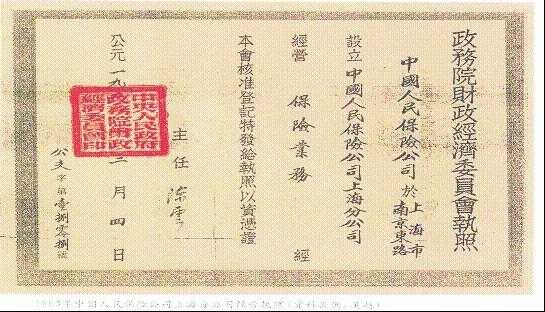 政務院財政經濟委員會執照
中國人民保險公司於上海市
南京東路
設立中國人民保險公司上海分公司
經營 保險業務 經
本會核准登記特發給執照以資憑證
主任 陳雲
公元一九 三月四日
中央人民政府
政務院財政
經濟委員會印
公文字第壹捌零捌號